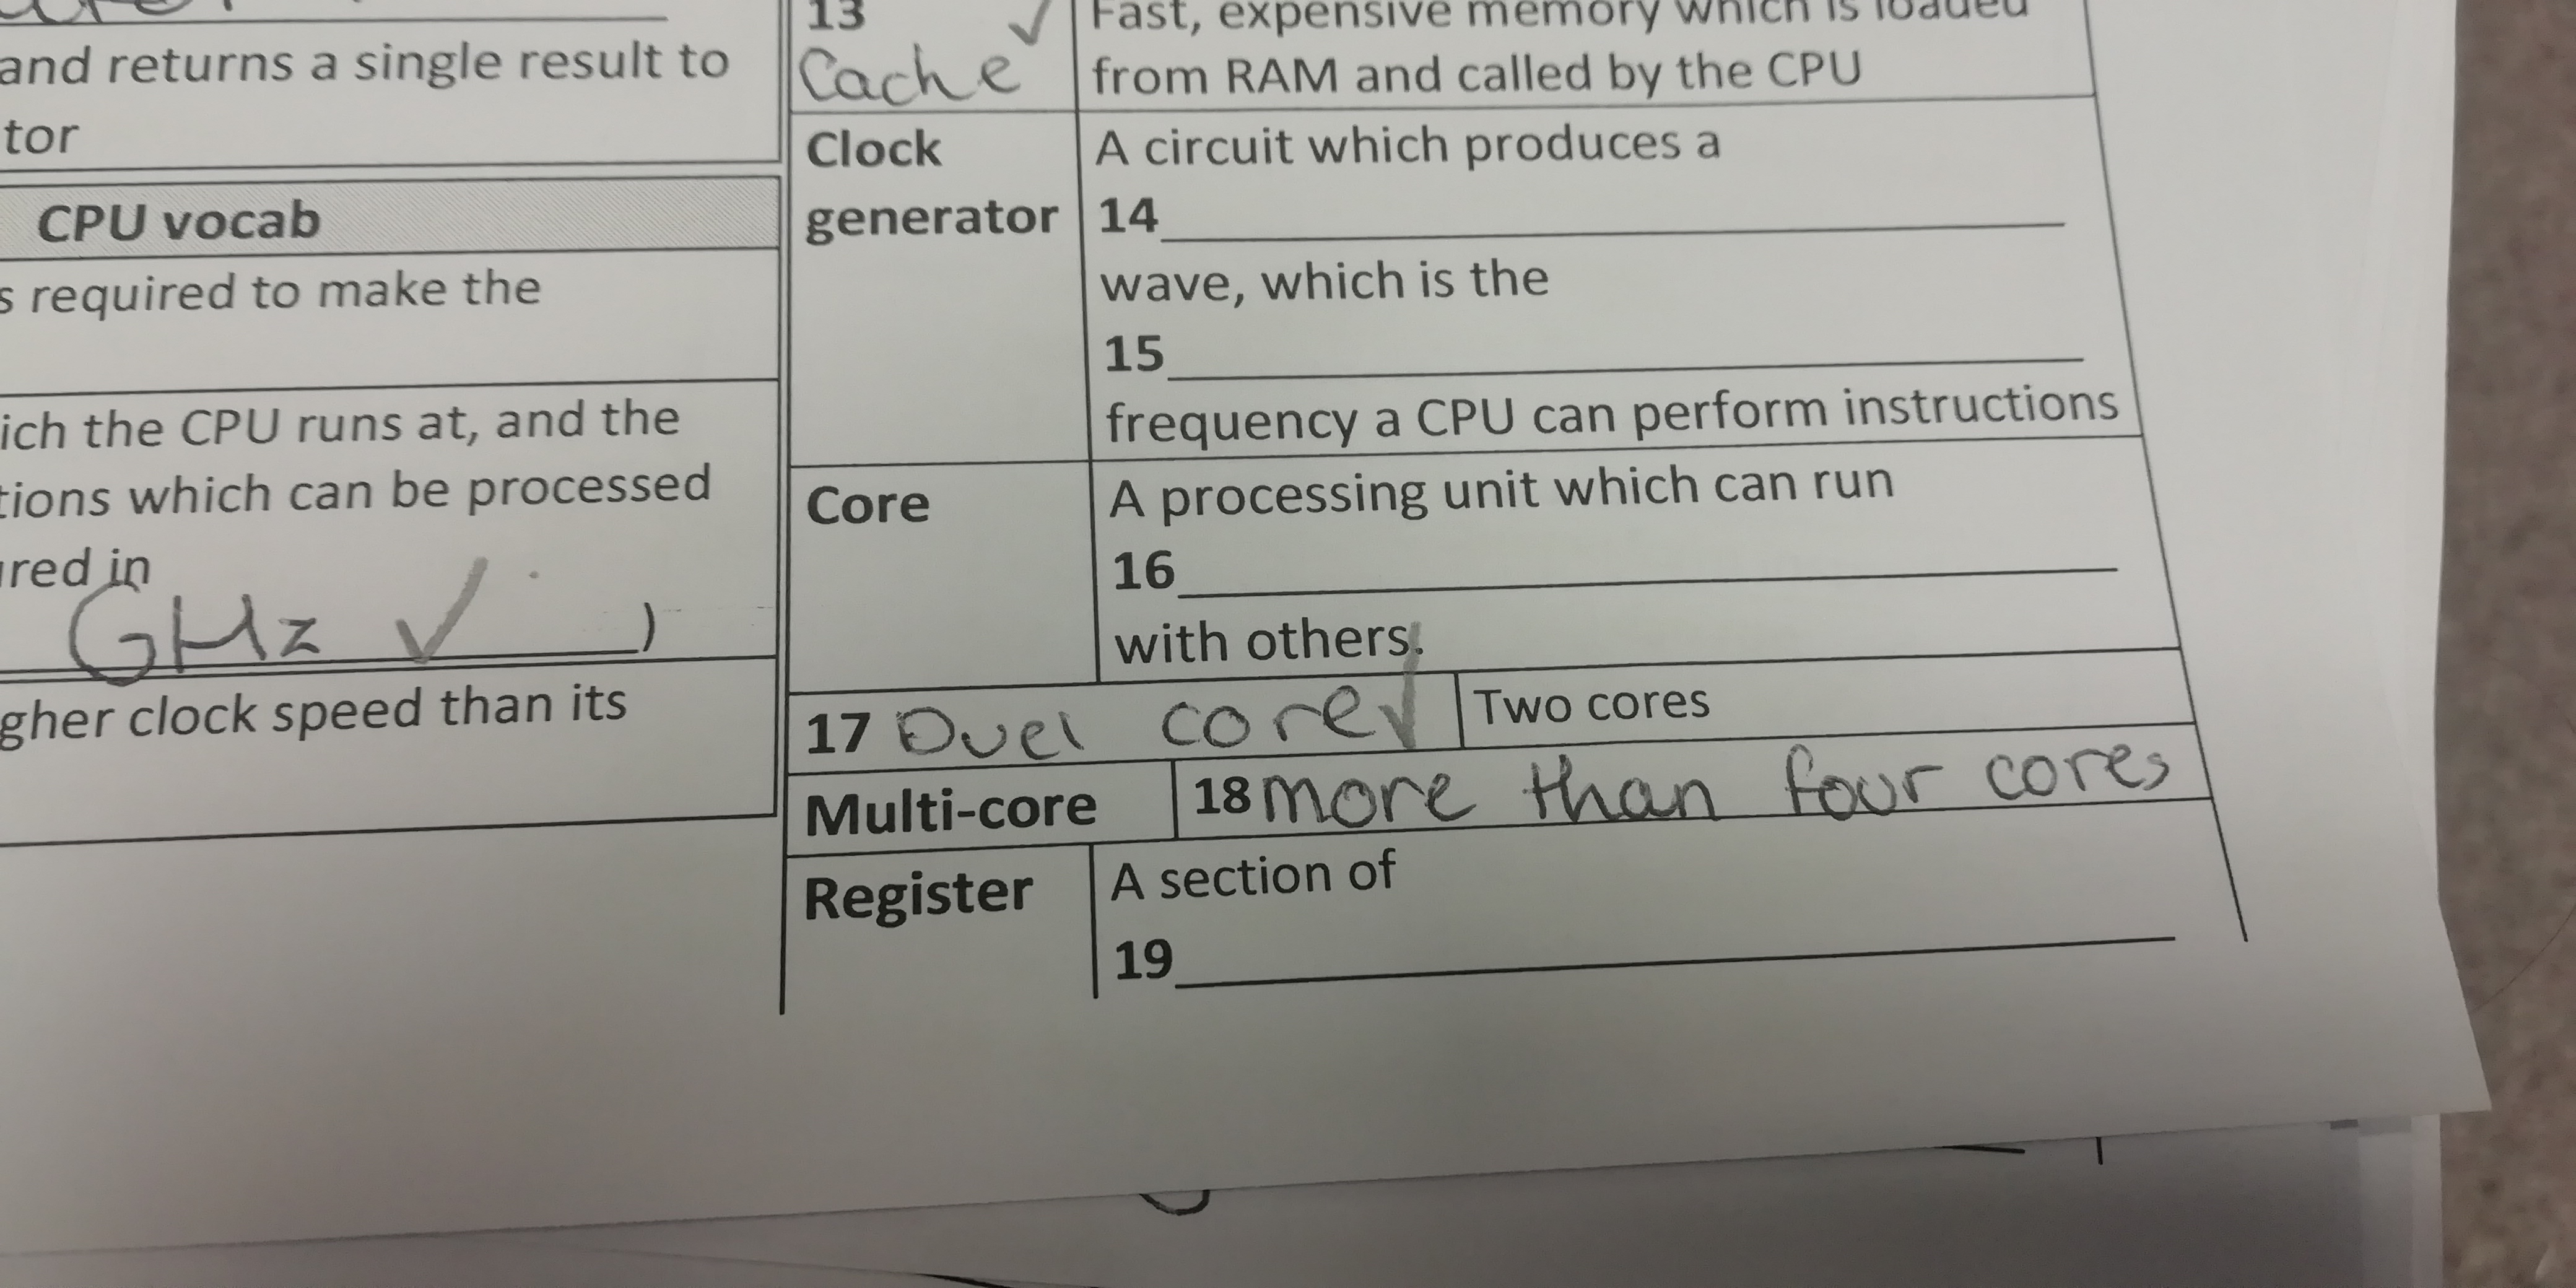 and returns a single result to
tor
CPU vocab
s required to make the
ich the CPU runs at, and the
tions which can be processed
red in
GHz ✓ )
gher clock speed than its
13 ✓
Cache
Fast, expensive memory which is loaded
from RAM and called by the CPU
Clock
generator
A circuit which produces a
14
wave, which is the
15
frequency a CPU can perform instructions
Core
A processing unit which can run
16
with others.
17 Duel core ✓
Two cores
Multi-core
18 more than four cores
Register
A section of
19